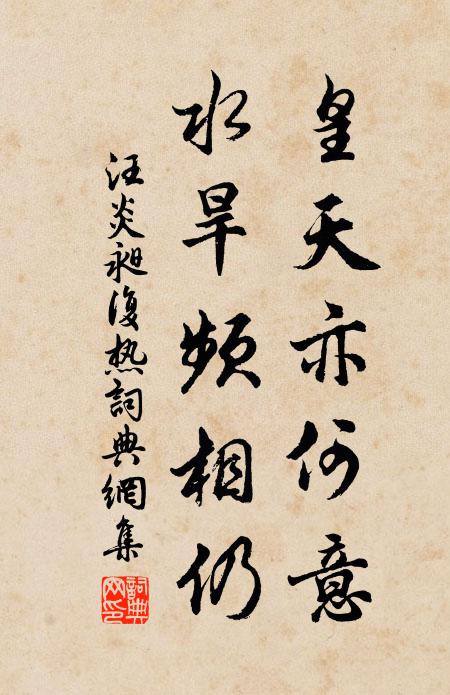 皇天亦何意
水旱频相仍
汪炎昶復热詞典網集
詞典网印